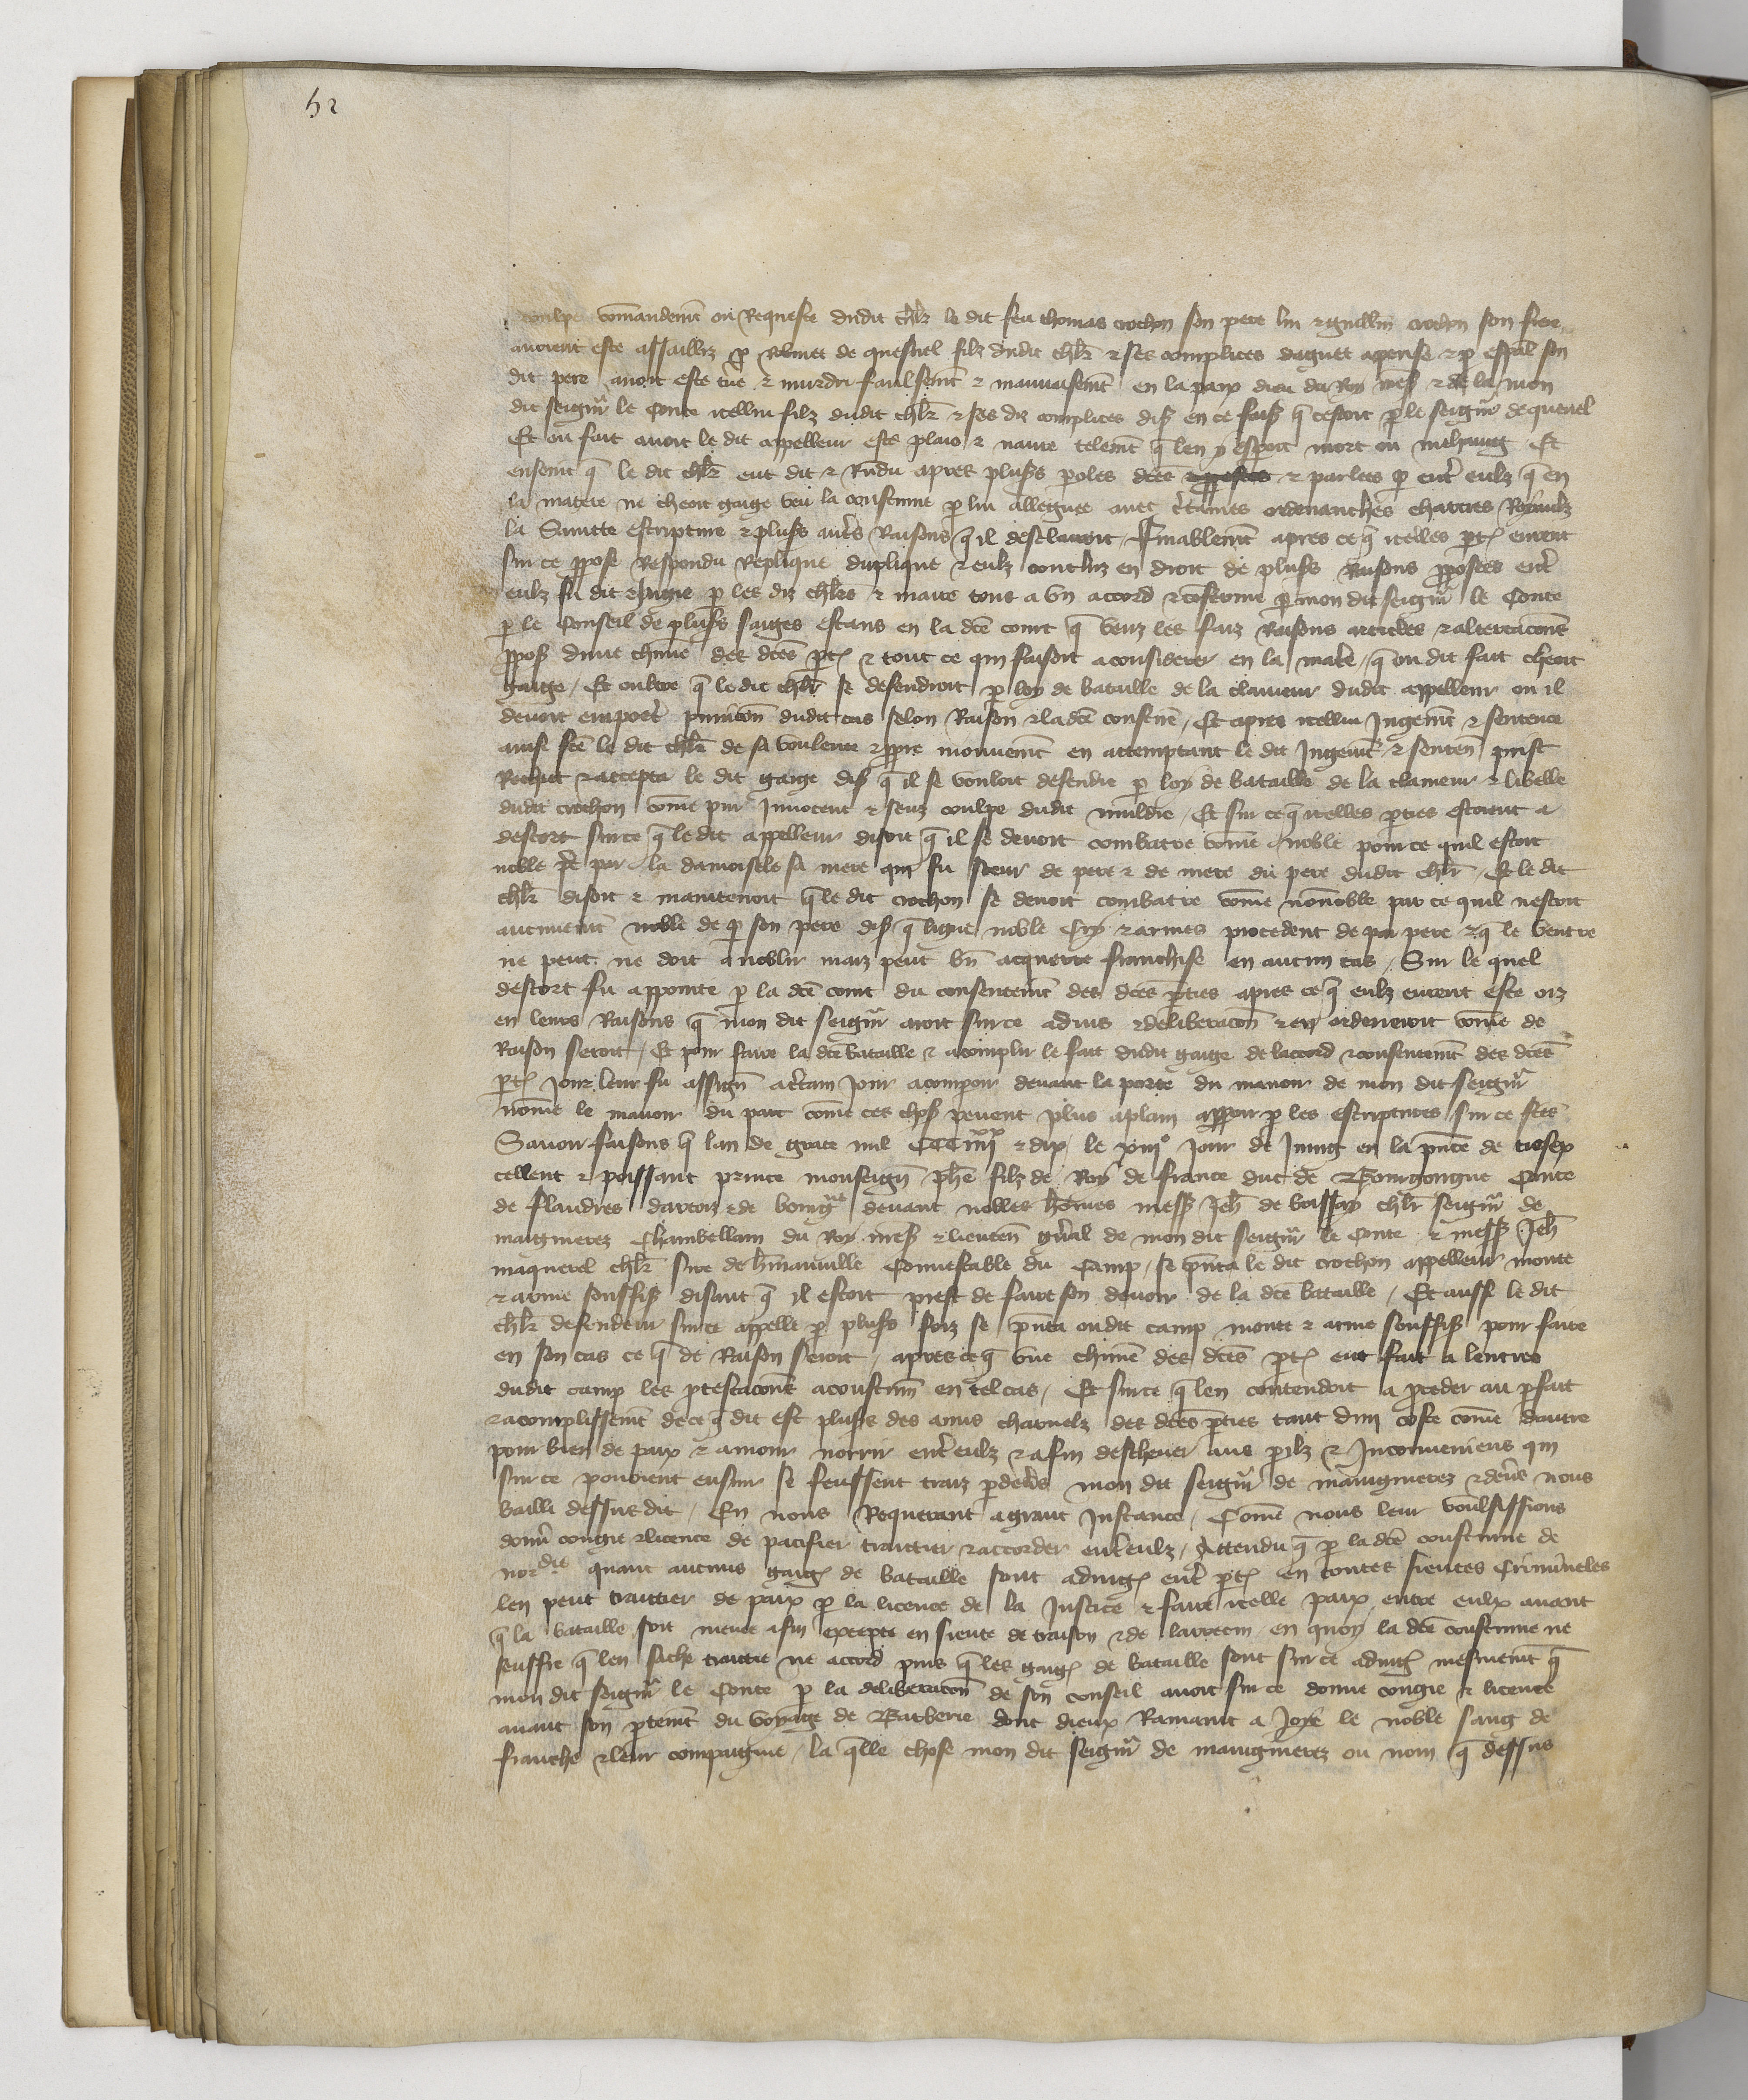 62
coulpe comandemt ou Requeste dudit chlr le dit feu thomas crochon son pere lui & guillm crochon son frere
auoient este assailliz p Robinet de quesnel filz dudit chlr & ses complices daguet apense & p especial son
dit pere auoit este tue & murdri faulsemt & mauuaisemt en la paix dieu du Roy nres & de la mon
dit seignr le Conte icellui filz dudit chlr & ses diz complices dis en ce fais q cestoit p le seignr de quenel
Et ou fait auoit le dit appelleur este plaie & naure telemt q len y esperoit mort ou mehaing Et
ensuit q le dit chlr eut dit & Rndu apres pluss poles dces & parlees p entr eulz q en
la matere ne cheoit gaige veu la coustume p lui alleguee auec certaines ordenanches chartres Royaulz
la Saincte escripture & pluss autrs Raisons q il desclairoit / Finablemt apres ce q icelles pts eurent
sur ce ppose Respondu Replique duplique & eulz concluz en droit de pluss Raisons pposees entr
eulz fu dit & Jugie p les diz chlrs & maire tout a vn accord & conforme p mon dit seignr le Conte
p le Conseil de pluss saiges estans en la dce court q veuz les faiz Raisons articles & altercacons
ppos dune chune des dces pts & tout ce qui faisoit a considerer en la matre / q ou dit fait cheoit
gaige / Et oultre q le dit chlr se defendroit p loy de bataille de la clameur dudit appelleur ou il
deuoit emportr punicon dudit cas selon Raison & la dce coustume / Et apres icellui Jugemt & sentence
ainsi fce le dit chlr de sa voulente & ppre mouuemt en attemptant le dit Jugemt & senten prist
Rechut & accepta le dit gaige dis q il se vouloit defendre p loy de bataille de la clameur & libelle
dudit crochon come pur Innocent & senz coulpe dudit multre / Et sur ce q icelles pties estoient a
descort sur ce q le dit appelleur disoit q il se deuoit combatre come noble pour ce quil estoit
noble pe par la damoisele sa mere qui fu seur de pere & de mere du pere dudit chlr / Et le dit
chlr disoit & maintenoit q le dit crochon se deuoit combatre come non noble par ce quil nestoit
aucunemt noble de p son pere dis q ligne noble Cry & armes procedent de par pere & q le ventre
ne peut ne doit anoblir maiz peut bn acquerre franchise en aucun cas / Sur le quel
descort fu appointe p la dce court du consentemt des dces pties apres ce q eulz eurent este oiz
en leurs Raisons q mon dit seignr auoit sur ce aduis & deliberacon & en ordeneroit come de
Raison seroit / Et pour faire la dce bataille & acomplir le fait dudit gaige de laccord & consentemt des dces
pts Jour leur fu assign a certain Jour a comparoir deuant la porte du manoir de mon dit seignr
nome le manoir du parc come ces chos peuent plus aplain apparoir p les escriptures sur ce fces
Sauoir faisons q lan de grace mil CCC iiiixx & dix le xiiie Jour de Juing en la pnce de tresex
cellent & poissant prince monseign phe filz de Roy de france duc de Bourgongne Conte
de flandres dartoiz & de bourgne deuant nobles homes mess Jeh de boissay chlr seignr de
maigneres Chambellain du Roy nres & lieuten gnral de mon dit seignr le Conte & mess Jeh
maquerel chlr sire de hermanuille Connestable du Camp / se pnta le dit crochon appelleur monte
& arme souffis disant q il estoit prest de faire son deuoir de la dce bataille / Et aussi le dit
chlr defendeur sur ce appelle p pluss foiz se pnta ou dit camp monte & arme souffis pour faire
en son cas ce q de Raison seroit / apres ce q vne chune des dces pts eut fait a lentree
dudit camp les ptestacons acoustum en tel cas / Et sur ce q len contendoit a pceder au pfait
& acomplissemt de ce q dit est pluss des amis charnelz des dces pties tant dun coste come dautre
pour bien de paix & amour norrir entr eulz & afin descheuer aus perilz & Inconueniens qui
sur ce pouoient ensuir se feussent traiz pdeuers mon dit seignr de maingneres & deuers nous
bailli dessusdit / En nous Requerant a grant Instance / Come nous leur voulsissions
donnr congie & licence de pacifier traictier & accorder entr eulz / Attendu q p la dce coustume de
nordie quant aucuns gaigs de bataille sont adiugs entr pts en toutes sieutes Crimineles
len peut traictier de paix p la licence de la Justice & faire icelle paix entre eulx auant
q la bataille soit menee a fin excepte en sieute de traison & de larrecin en quoy la dce coustume ne
seuffre q len fache traictie ne accord puis q les gaigs de bataille sont sur ce adiugs mesmemt q
mon dit seignr le Conte p la deliberacon de son conseil auoit sur ce donne congie & licence
auant son ptemt du voyage de Barberie dont dieux Ramaint a Joye le noble sang de
franche & leur compaignie / la qlle chose mon dit seignr de maingneres ou nom q dessus